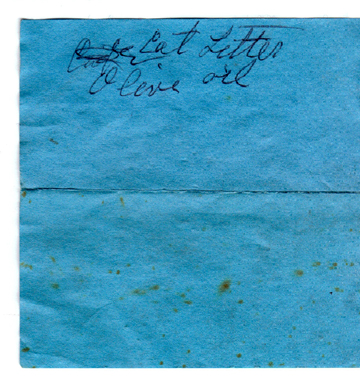 Cat Litter
Olive oil